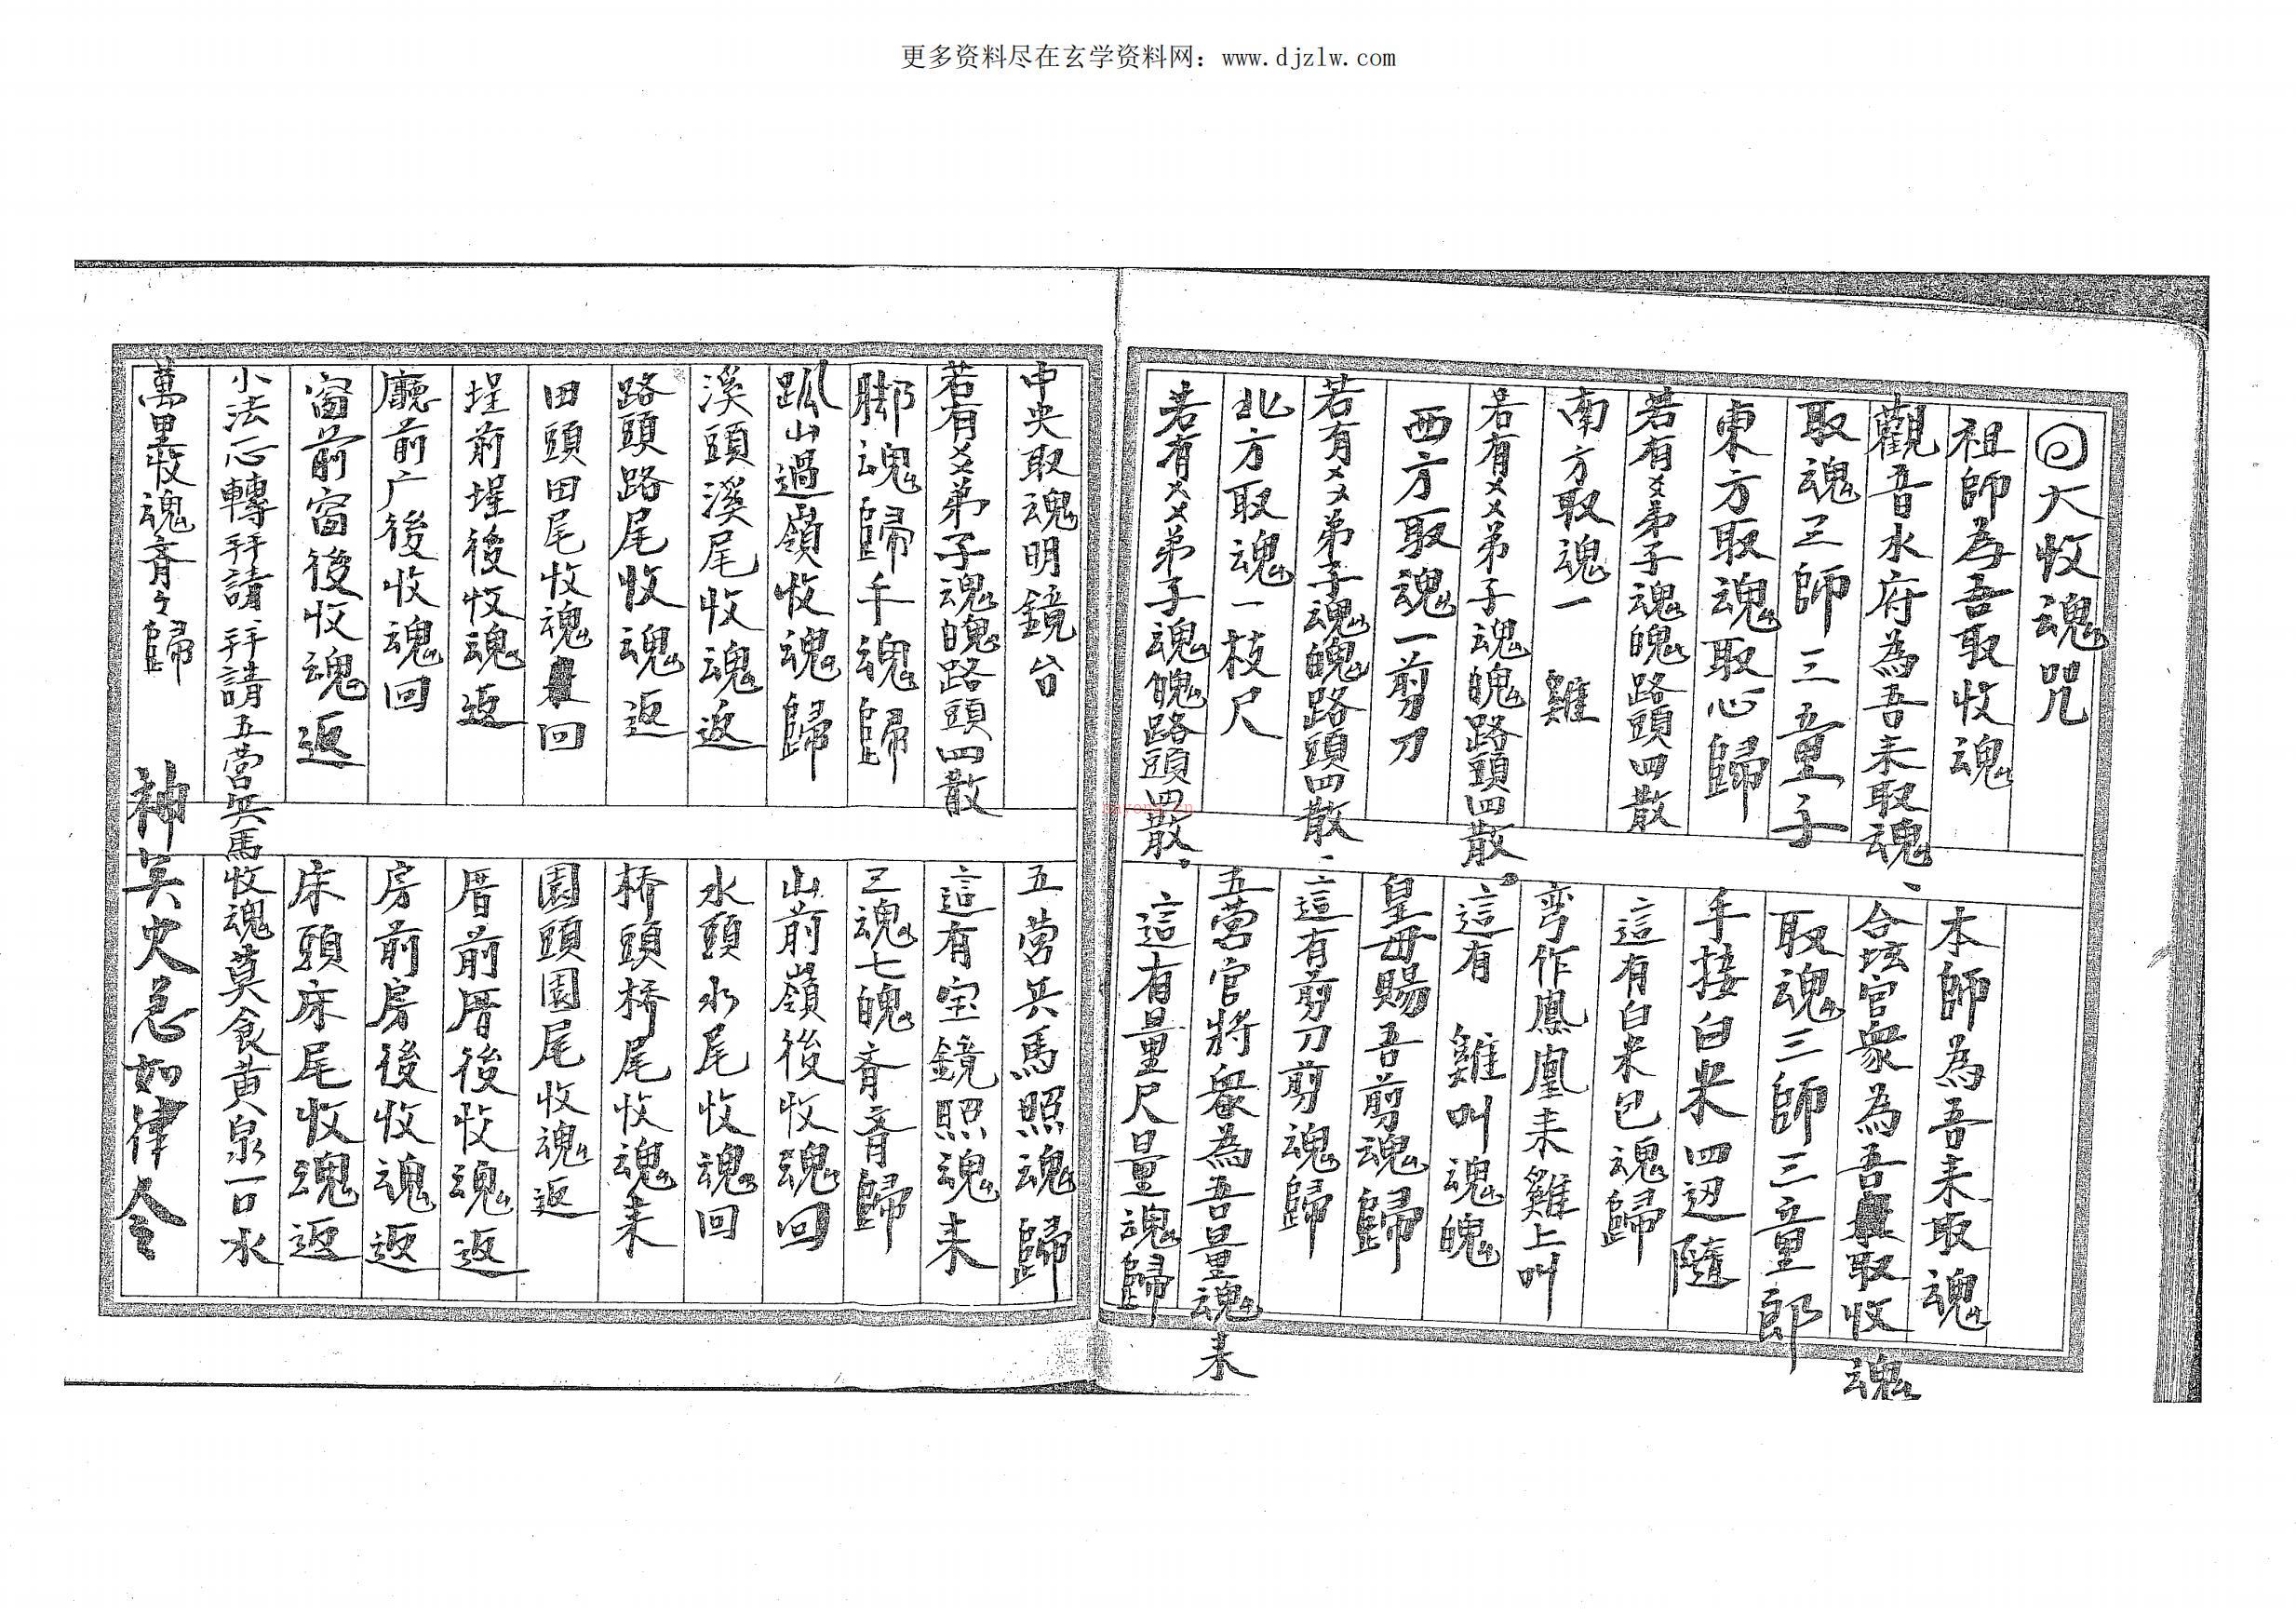 更多资料尽在玄学资料网：www.djzlw.com
大收魂咒
祖師為吾取收魂 本師為吾来取魂
觀音水府為吾来取魂、合坛官衆為吾取收魂
取魂三師三童子 取魂三師三童郎
東方取魂取心歸 手接白米四边隨
若有㐅㐅弟子魂魄路頭四散 這有白米包魂歸
南方取魂一 雞 弯作鳳凰来雞上叫
若有㐅㐅弟子魂魄路頭四散。這有 雞叫魂魄
西方取魂一剪刀 皇母賜吾剪魂歸
若有㐅㐅弟子魂魄路頭四散、這有剪刀剪魂歸
北方取魂一枝尺 五营官將衆為吾量魂来
若有㐅㐅弟子魂魄路頭四散、這有量尺量魂歸
中央取魂明鏡台 五营兵馬照魂歸
若有㐅㐅弟子魂魄路頭四散 這有宝鏡照魂来
脚魂歸手魂歸 三魂七魄斉斉歸
山過嶺收魂歸 山前嶺後收魂回
溪頭溪尾收魂返 水頭水尾收魂回
路頭路尾收魂返 桥頭桥尾收魂来
田頭田尾收魂回 園頭園尾收魂返
埕前埕後收魂返 厝前厝後收魂返
廳前广後收魂回 房前房後收魂返
窗前窗後收魂返 床頭床尾收魂返
小法心轉拜請、拜請五营兵馬收魂莫食黄泉一口水
萬里收魂斉々歸 神兵火急如律令